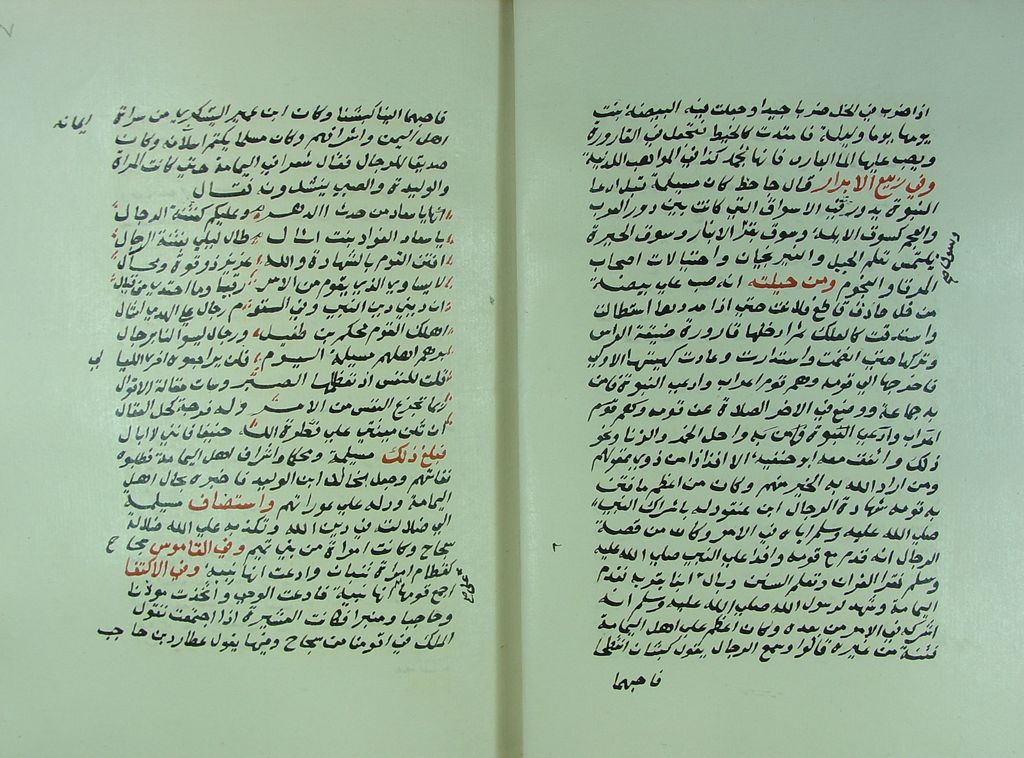 اذا ضرب في الخل ضربا جيدا وجعلت فيه البيضة بنت
يومها يوما وليلة فامتدت كالخيط فتجعل في القارورة
ويصب عليها الماء البارد فانها تجمد كذا في المواهب اللدنية
وفي ربيع الابرار قال جاحظ كان مسيلمة قبل ادعا
النبوة يدور في الاسواق التي كانت بين دور العرب
والعجم كسوق الابلة وسوق بقة وسوق الانبار وسوق الحيرة
يلتمس تعلم الحيل والنيرنجيات واحتيالات اصحاب
الرقا والنجوم ومن حيلته انه صب علي بيضة
من خل حاذق قاطع فلانت حتي اذا مددها استطالت
واستدقت كالعلك ثم ادخلها قارورة ضيقة الراس
وتركها حتي انضمت واستدارت وعادت كهيئتها الاولي
فاخرجها الي قومه وهم قوم اعراب وادعي النبوة فامن
به جماعة ووضع في الاخر الصلاة عن قومه وكلهم قوم
اعراب وادعي النبوة فامن به واحل الخمر والزنا ونحو
ذلك واتفق معه بنو حنيفة الا افذاذا من ذوي عقولهم
ومن اراد الله به الخير منهم وكان من اعظم ما فتن
به قومه شهادة الرجال ابن عنفوة له باشراك النبي
صلي الله عليه وسلم اياه في الامر وكان من قصة
الرجال انه قدم مع قومه وافدا علي النبي صلي الله عليه
وسلم فقرا القران وتعلم السنن
اليمامة وشهد لرسول الله صلي الله عليه وسلم انه
اشركه في الامر من بعده وكان اعظم علي اهل اليمامة
فتنة من غيره قالوا وسمع الرجال يقول كبشان انتطحا
فاحبهما
فاحبهما الينا كبشنا وكان ابن عمير اليشكري من سراة
اهل اليمن واشرافهم وكان مسلما يكتم اسلامه وكان
ايمانه
صديقا للرجال فقال شعرا في اليمامة حتي كانت المراة
والوليدة والصبي ينشدونه فقال
وعليكم كفتنة الدجال
يا سعاد الفواد بنت اثال طال ليلي بفتنة الرجال
افتن القوم بالشهادة والله عزيز ذو قوة ومحال
لا يساوي الذي يقوم من الامر قبالا وما احتذي من قبال
ان ديني دين النبي وفي القوم رجال علي الهدي امثالي
اهلك القوم محكم بن طفيل ورجال ليسوا لنا برجال
بزهم امرهم مسيلمة اليوم فلن يرجعوه اخر الليالي
قلت للنفس اذ تعظمها الصبر وساءت مقالة الاقوال
ربما تجزع النفوس من الامر وله فرجة كحل العقال
ان تكن ميتتي علي فطرة الله حنيفا فانني لا ابالي
فبلغ ذلك مسيلمة ومحكما واشراف اهل اليمامة فطلبوه
ففاتهم ولحق بخالد ابن الوليد فاخبره بحال اهل
اليمامة ودله علي عوراتهم واستضاف مسيلمة
الي ضلالته في دين الله وتكذبه علي الله ضلالة
سجاح وكانت امراة من بني تميم وفي القاموس سجاح
كقطام امراة تنبات وادعت انها نبية وفي الاكتفا
اجمع قومها انها نبية فادعت الوحي واتخذت موذنا
وحاجبا ومنبرا فكانت العشيرة اذا اجتمعت تقول
الملك في اقربنا من سجاح وفيها يقول عطارد بن حاجب